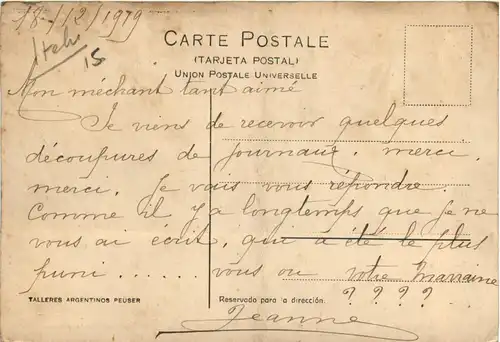 18-/12/1979
15
CARTE POSTALE
(TARJETA POSTAL)
UNION POSTALE UNIVERSELLE
Mon méchant tant aimé
Je viens de recevoir quelques
découpures de journaux, merci,
merci. Je vais vous répondre.
Comme il y a longtemps que je ne
vous ai écrit, qui a été le plus
puni ...... vous ou votre marraine
? ? ? ?
TALLERES ARGENTINOS PEUSER
Reservado para la dirección.
Jeanne